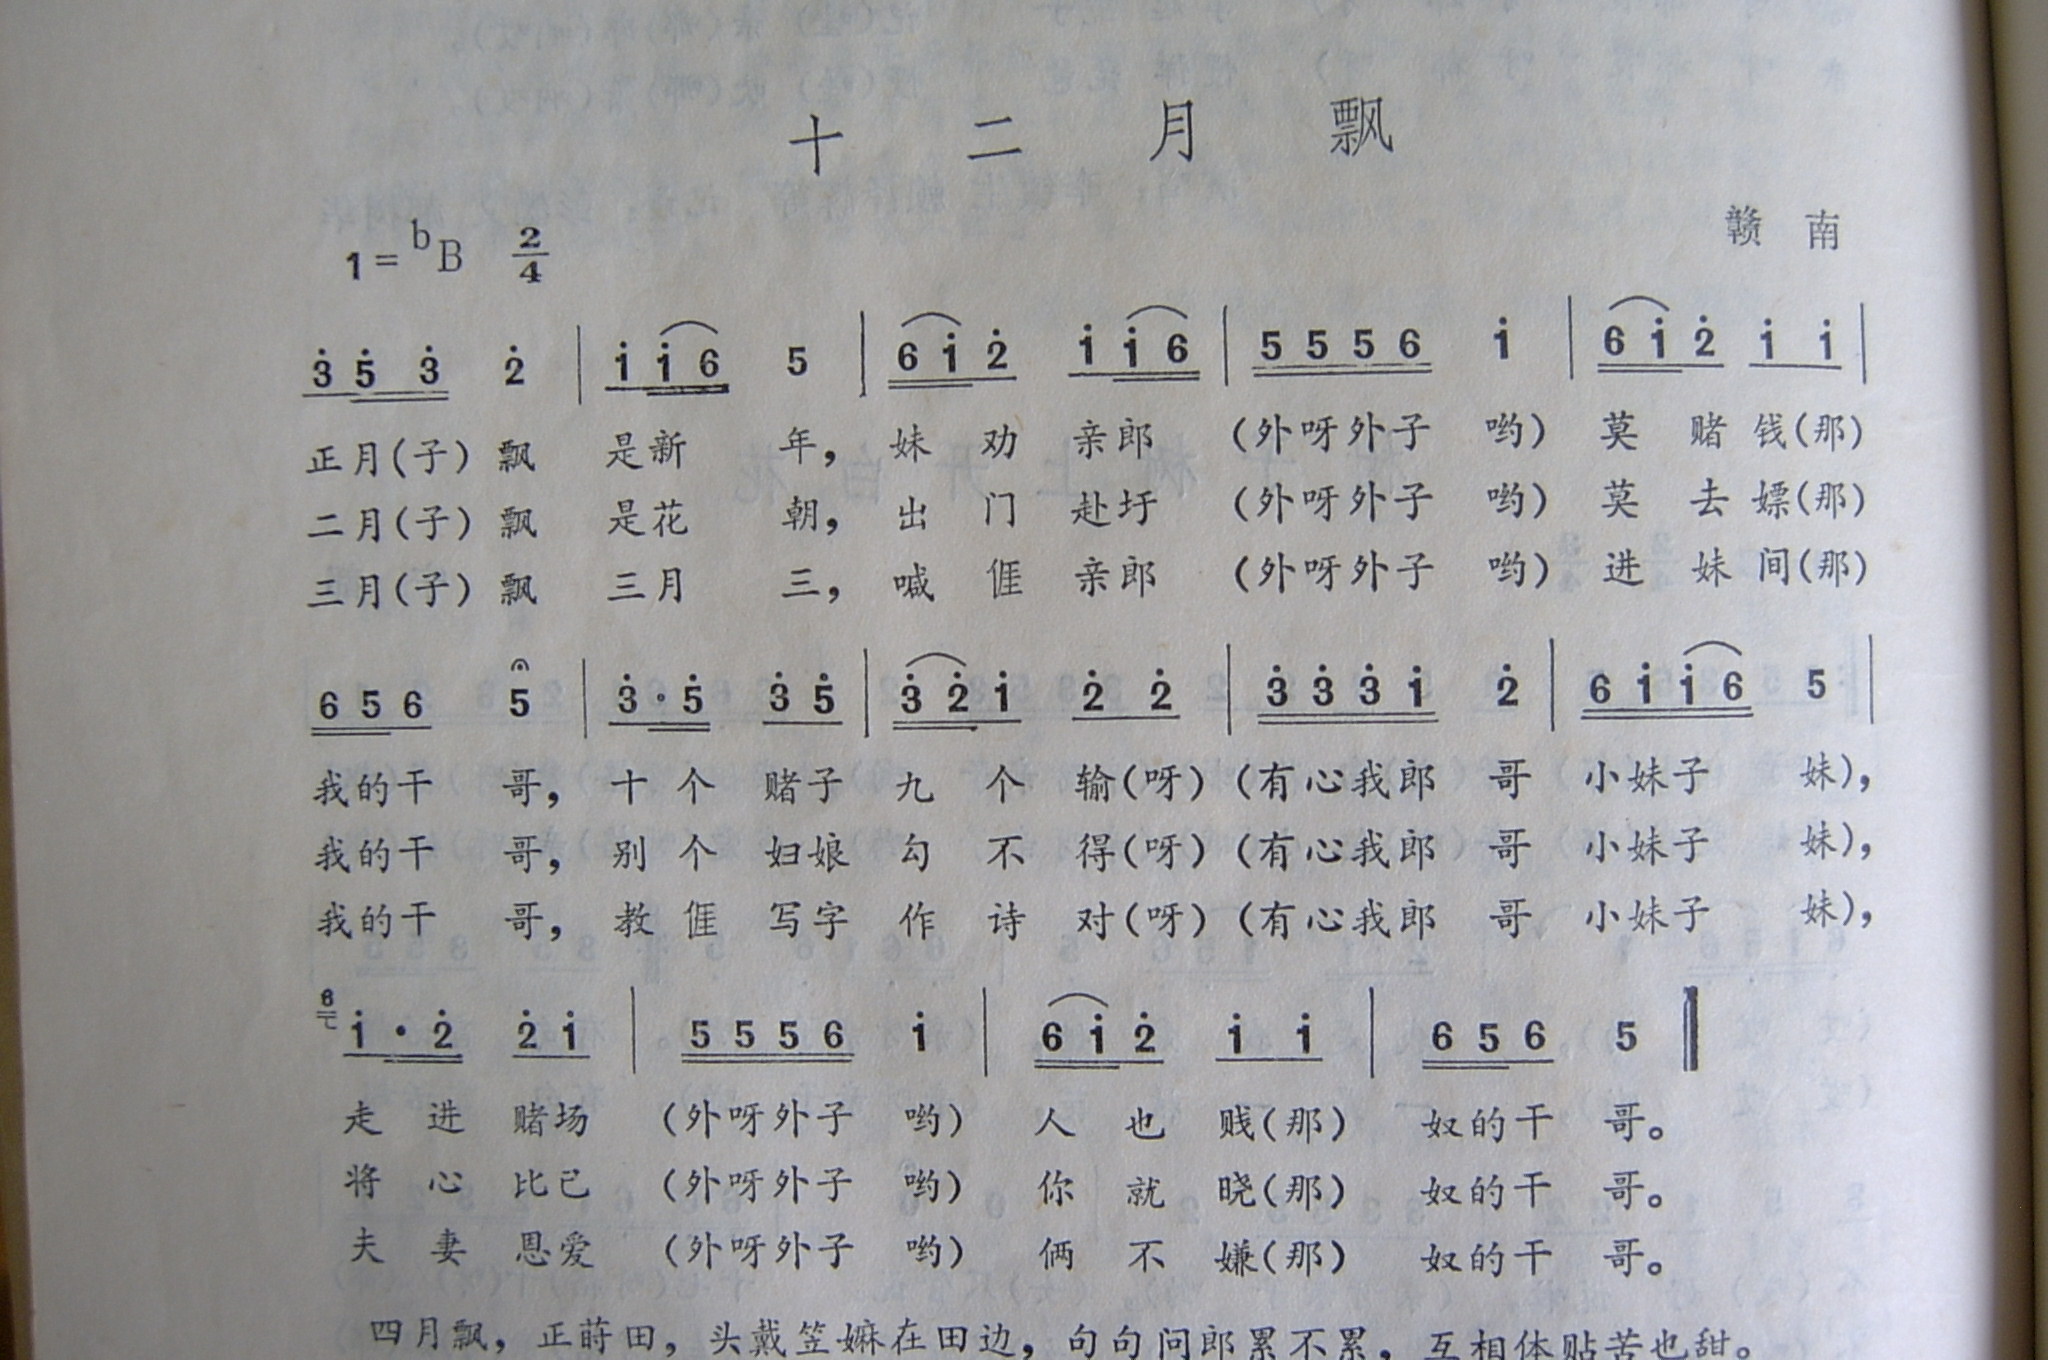 十二月飘
赣南
1=bB 2/4
3̇ 5̇ 3̇ 2̇ | 1̇ 1̇ 6 5 | 6 1̇ 2̇ 1̇ 1̇ 6 | 5 5 5 6 1̇ | 6 1̇ 2̇ 1̇ 1̇ |
正月(子)飘 是新 年，妹 劝 亲郎 (外呀外子 哟) 莫 赌 钱(那)
二月(子)飘 是花 朝，出 门 赴圩 (外呀外子 哟) 莫 去 嫖(那)
三月(子)飘 三月 三，喊 𠊎 亲郎 (外呀外子 哟) 进 妹 间(那)
6 5 6 5 | 3̇ · 5̇ 3̇ 5̇ | 3̇ 2̇ 1̇ 2̇ 2̇ | 3̇ 3̇ 3̇ 1̇ 2̇ | 6 1̇ 1̇ 6 5 |
我的干 哥，十 个 赌子 九 个 输(呀) (有心我郎 哥 小妹子 妹)，
我的干 哥，别 个 妇娘 勾 不 得(呀) (有心我郎 哥 小妹子 妹)，
我的干 哥，教 𠊎 写字 作 诗 对(呀) (有心我郎 哥 小妹子 妹)，
6 1̇ · 2̇ 2̇ 1̇ | 5 5 5 6 1̇ | 6 1̇ 2̇ 1̇ 1̇ | 6 5 6 5 ‖
走 进 赌场 (外呀外子 哟) 人 也 贱(那) 奴的干 哥。
将 心 比己 (外呀外子 哟) 你 就 晓(那) 奴的干 哥。
夫 妻 恩爱 (外呀外子 哟) 俩 不 嫌(那) 奴的干 哥。
四月飘，正莳田，头戴笠嫲在田边，句句问郎累不累，互相体贴苦也甜。